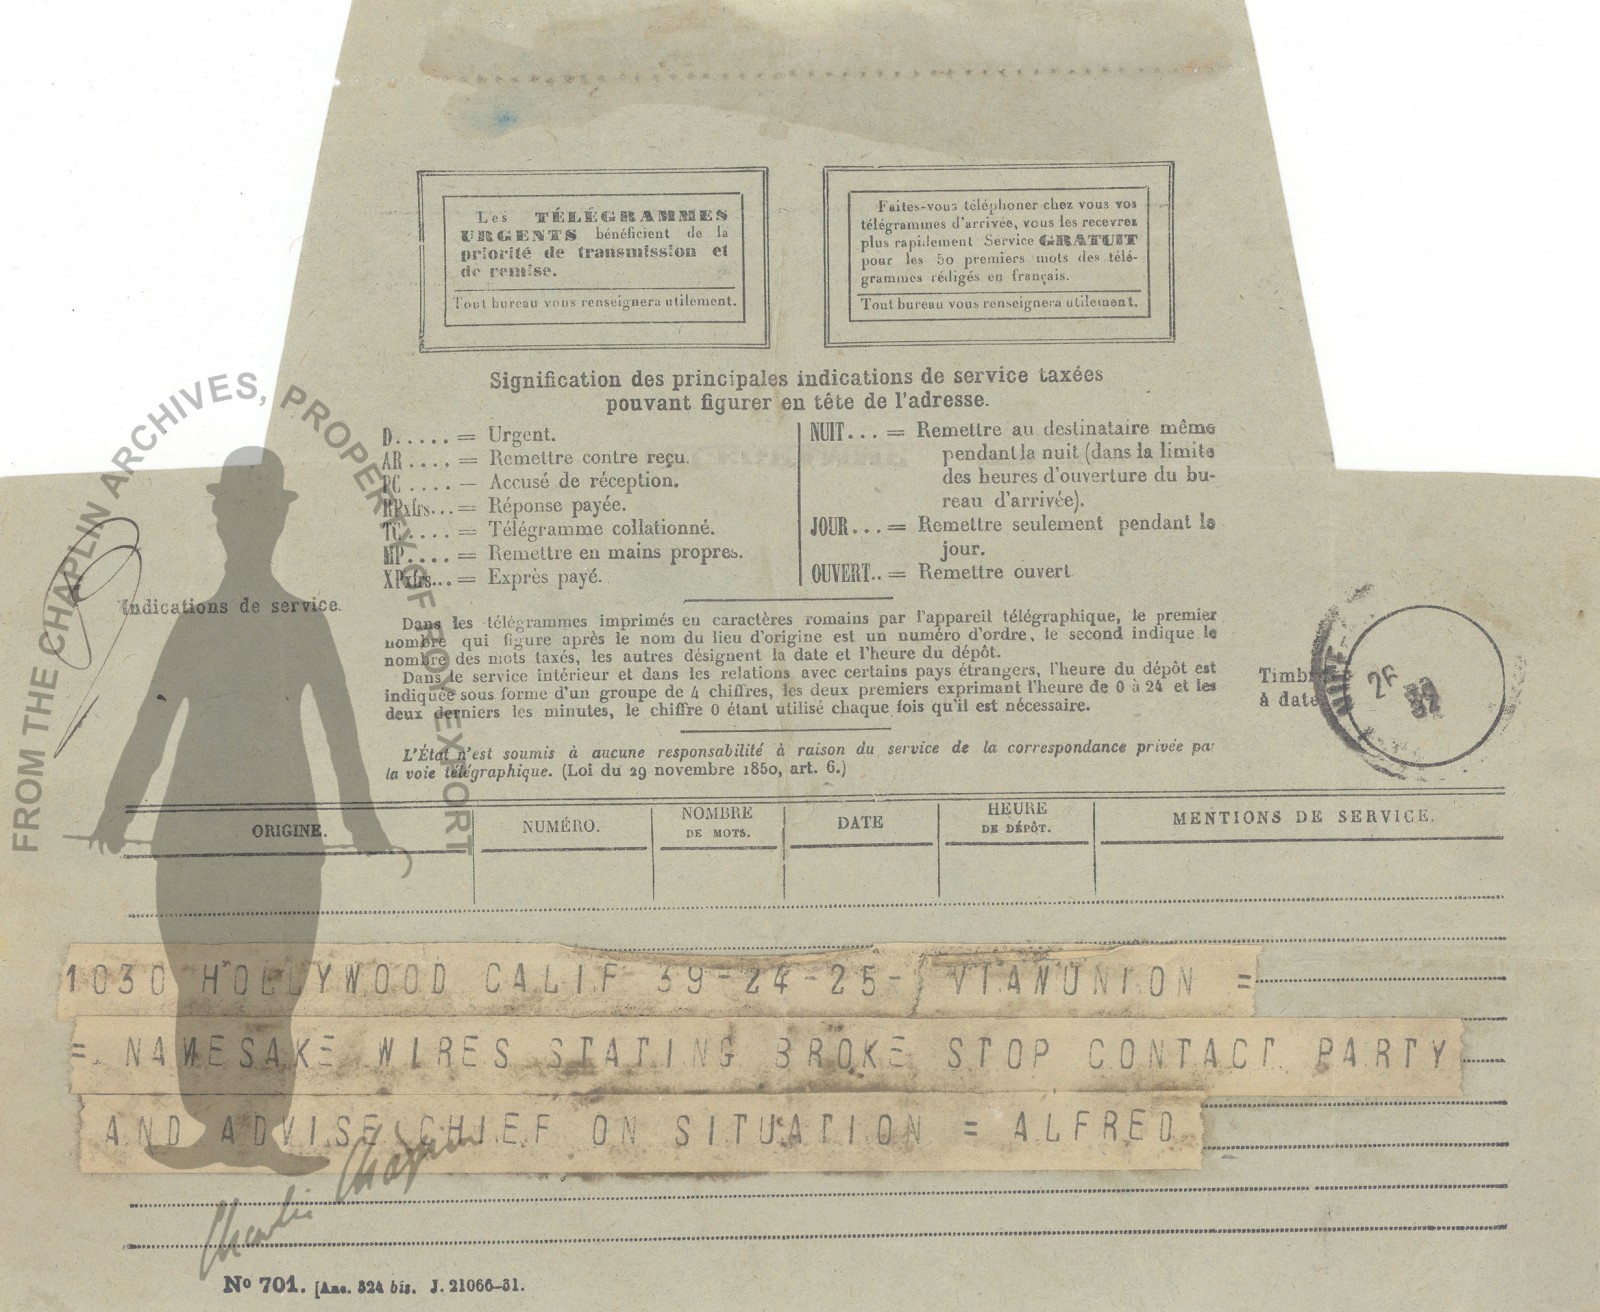 Les TÉLÉGRAMMES
URGENTS bénéficient de la
priorité de transmission et
de remise.
Tout bureau vous renseignera utilement.
Faites-vous téléphoner chez vous vos
télégrammes d'arrivée, vous les recevrez
plus rapidement Service GRATUIT
pour les 50 premiers mots des télé-
grammes rédigés en français.
Tout bureau vous renseignera utilement.
Signification des principales indications de service taxées
pouvant figurer en tête de l'adresse.
D..... = Urgent.
AR.... = Remettre contre reçu.
PC.... — Accusé de réception.
RPxfrs... = Réponse payée.
TC.... = Télégramme collationné.
MP.... = Remettre en mains propres.
XPxfrs... = Exprès payé.
NUIT... = Remettre au destinataire même
pendant la nuit (dans la limite
des heures d'ouverture du bu-
reau d'arrivée).
JOUR... = Remettre seulement pendant le
jour.
OUVERT.. = Remettre ouvert
Indications de service.
Dans les télégrammes imprimés en caractères romains par l'appareil télégraphique, le premier
nombre qui figure après le nom du lieu d'origine est un numéro d'ordre, le second indique le
nombre des mots taxés, les autres désignent la date et l'heure du dépôt.
Dans le service intérieur et dans les relations avec certains pays étrangers, l'heure du dépôt est
indiquée sous forme d'un groupe de 4 chiffres, les deux premiers exprimant l'heure de 0 à 24 et les
deux derniers les minutes, le chiffre 0 étant utilisé chaque fois qu'il est nécessaire.
Timbre
à date
L'État n'est soumis à aucune responsabilité à raison du service de la correspondance privée par
la voie télégraphique. (Loi du 29 novembre 1850, art. 6.)
ORIGINE. NUMÉRO. NOMBRE DE MOTS. DATE HEURE DE DÉPÔT. MENTIONS DE SERVICE.
1030 HOLLYWOOD CALIF 39-24-25- VIANUNION =
= NAMESAKE WIRES STATING BROKE STOP CONTACT PARTY
AND ADVISE CHIEF ON SITUATION = ALFRED
Charlie Chaplin
No 701. [Anc. 324 bis. J. 21066-31.
FROM THE CHAPLIN ARCHIVES, PROPERTY OF ROY EXPORT